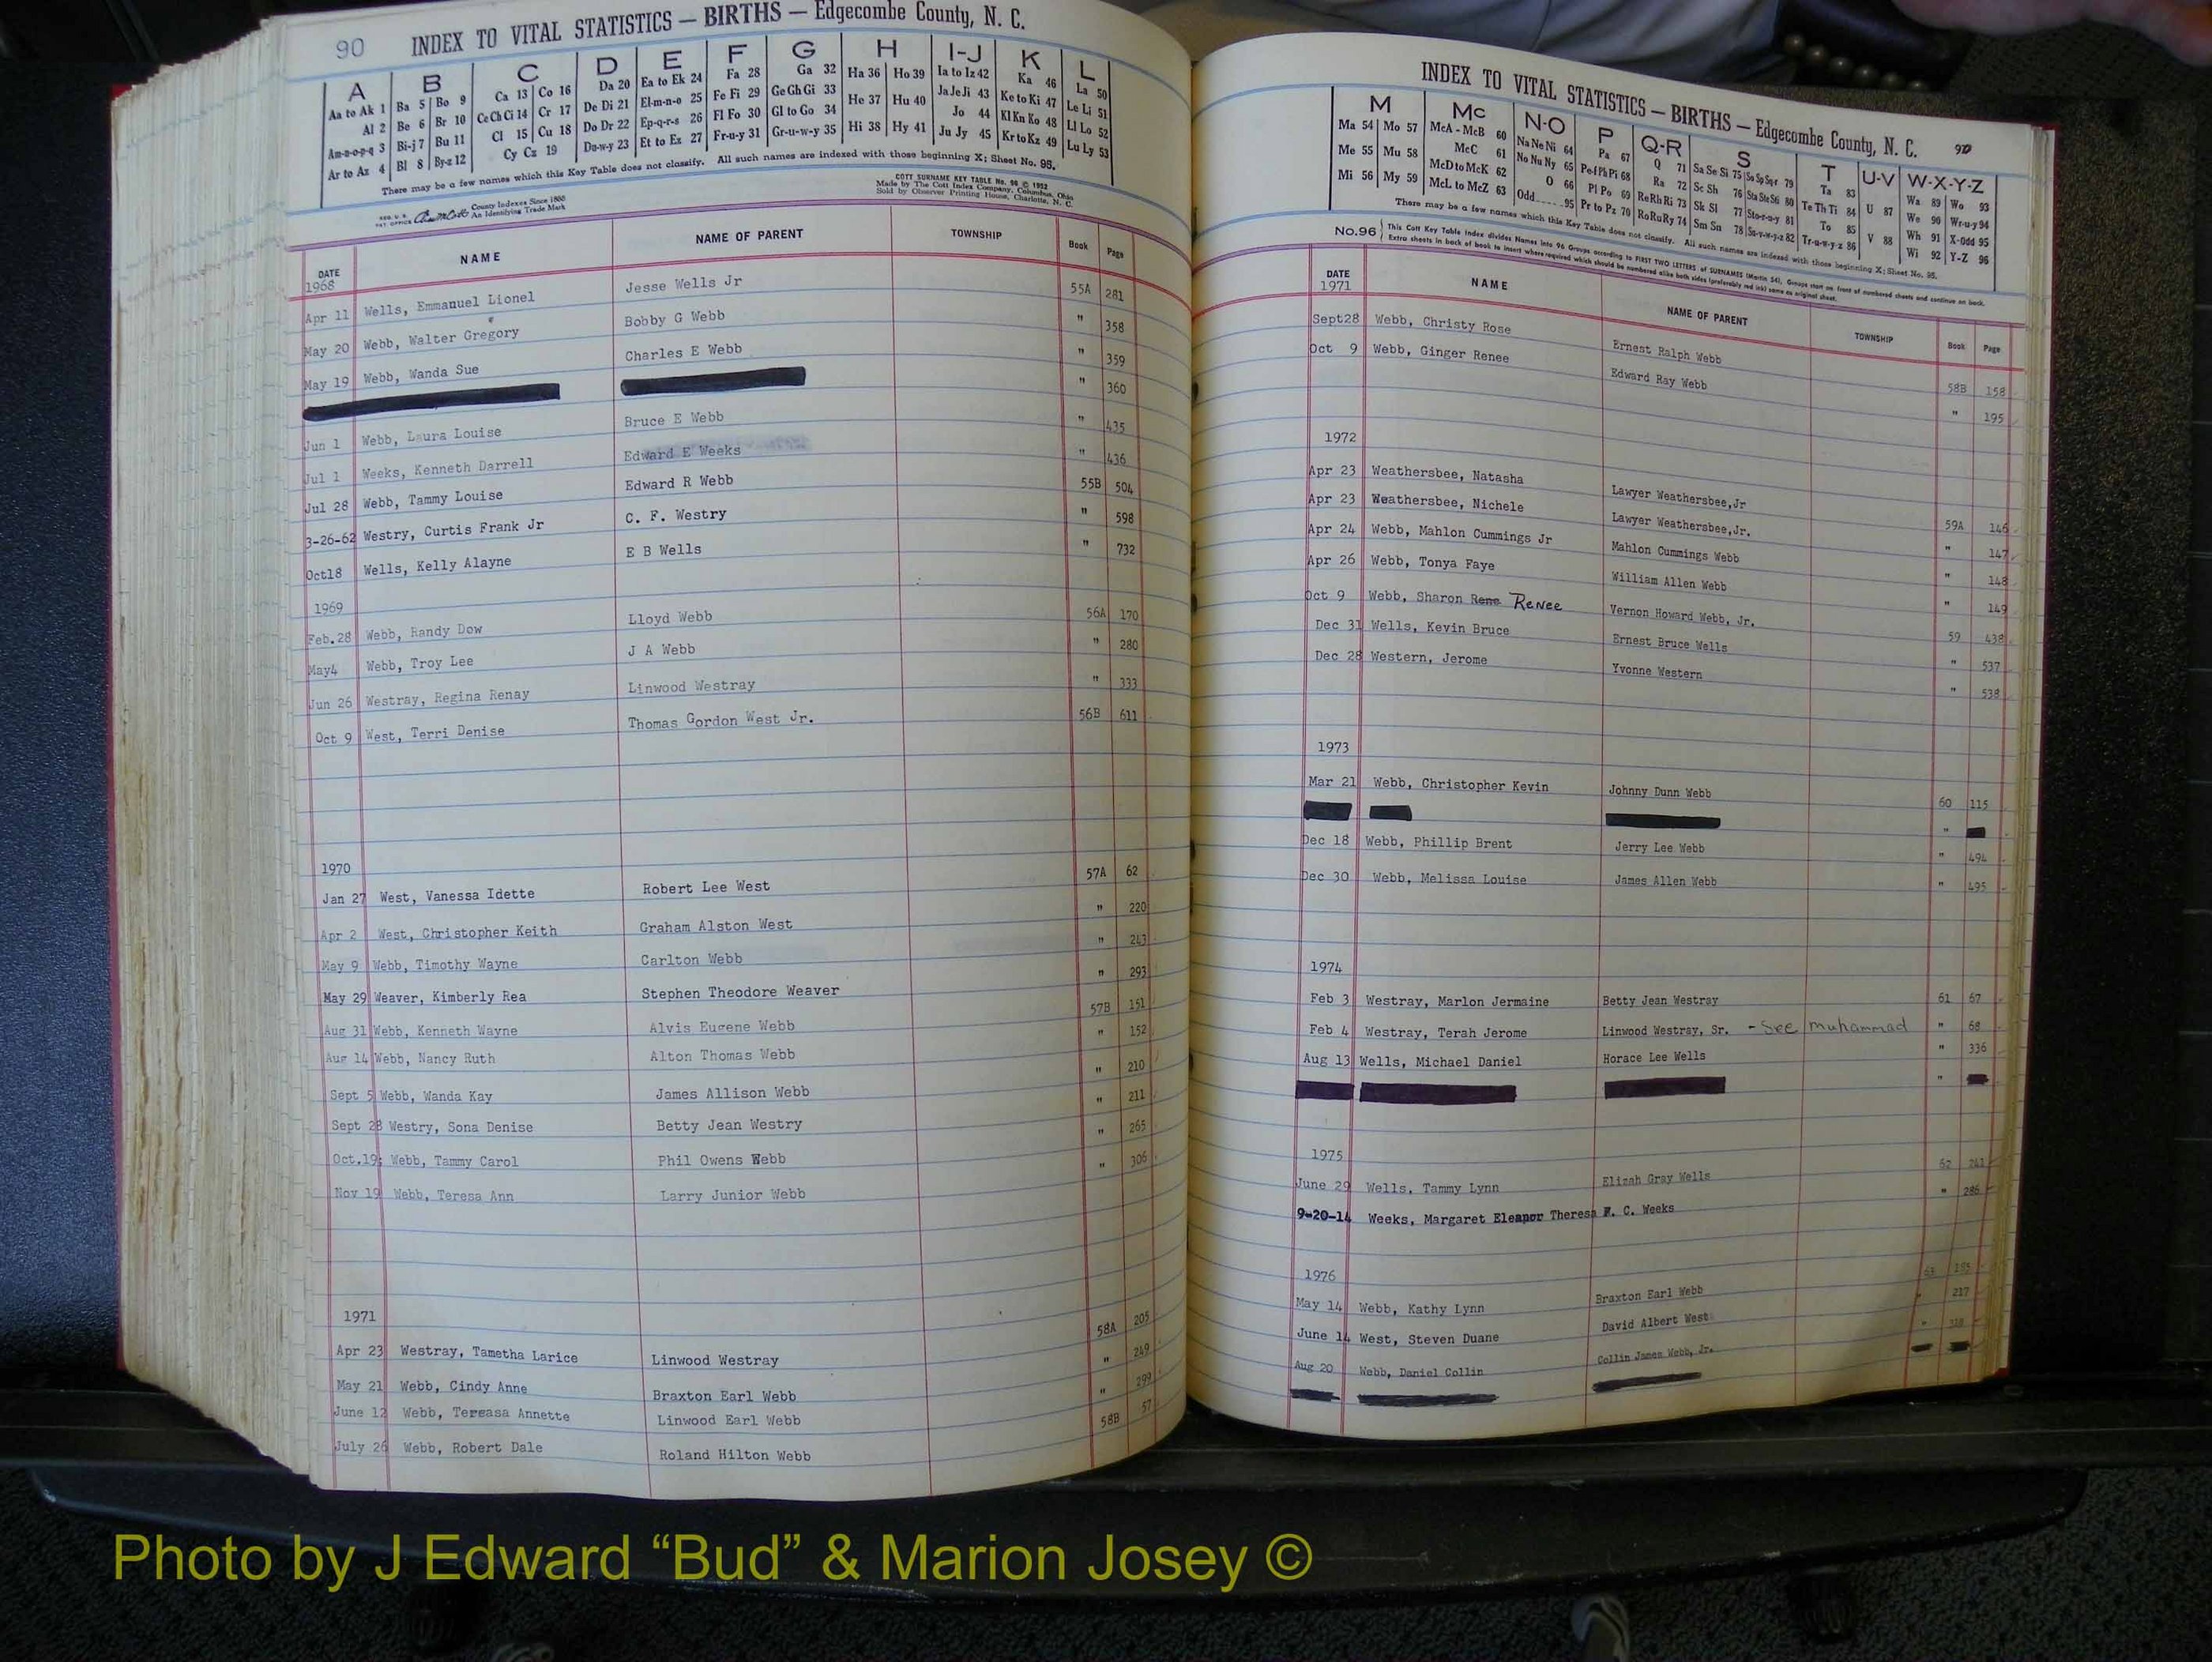 90 INDEX TO VITAL STATISTICS — BIRTHS — Edgecombe County, N. C.
A B C D E F G H I-J K L
Aa to Ak 1 Ba 5 Bo 9 Ca 13 Co 16 Da 20 Ea to Ek 24 Fa 28 Ga 32 Ha 36 Ho 39 Ia to Iz 42 Ka 46 La 50
Al 2 Be 6 Br 10 Ce Ch Ci 14 Cr 17 De Di 21 El-m-n-o 25 Fe Fi 29 Ge Gh Gi 33 He 37 Hu 40 Ja Je Ji 43 Ke to Ki 47 Le Li 51
Am-n-o-p-q 3 Bi-j 7 Bu 11 Cl 15 Cu 18 Do Dr 22 Ep-q-r-s 26 Fl Fo 30 Gl to Go 34 Hi 38 Hy 41 Jo 44 Kl Kn Ko 48 Ll Lo 52
Ar to Az 4 Bl 8 By-z 12 Cy Cz 19 Du-w-y 23 Et to Ez 27 Fr-u-y 31 Gr-u-w-y 35 Ju Jy 45 Kr to Kz 49 Lu Ly 53
There may be a few names which this Key Table does not classify. All such names are indexed with those beginning X; Sheet No. 95.
REG. U. S. PAT. OFFICE County Indexes Since 1888 An Identifying Trade Mark
COTT SURNAME KEY TABLE No. 96 © 1952
Made by The Cott Index Company, Columbus, Ohio
Sold by Observer Printing House, Charlotte, N. C.
DATE NAME NAME OF PARENT TOWNSHIP Book Page
1968
Apr 11 Wells, Emmanuel Lionel Jesse Wells Jr 55A 281
May 20 Webb, Walter Gregory Bobby G Webb " 358
May 19 Webb, Wanda Sue Charles E Webb " 359
" 360
Jun 1 Webb, Laura Louise Bruce E Webb " 435
Jul 1 Weeks, Kenneth Darrell Edward E Weeks " 436
Jul 28 Webb, Tammy Louise Edward R Webb 55B 504
3-26-62 Westry, Curtis Frank Jr C. F. Westry " 598
Oct18 Wells, Kelly Alayne E B Wells " 732
1969
Feb.28 Webb, Randy Dow Lloyd Webb 56A 170
May4 Webb, Troy Lee J A Webb " 280
Jun 26 Westray, Regina Renay Linwood Westray " 333
Oct 9 West, Terri Denise Thomas Gordon West Jr. 56B 611
1970
Jan 27 West, Vanessa Idette Robert Lee West 57A 62
Apr 2 West, Christopher Keith Graham Alston West " 220
May 9 Webb, Timothy Wayne Carlton Webb " 243
May 29 Weaver, Kimberly Rea Stephen Theodore Weaver " 293
Aug 31 Webb, Kenneth Wayne Alvis Eugene Webb 57B 151
Aug 14 Webb, Nancy Ruth Alton Thomas Webb " 152
Sept 5 Webb, Wanda Kay James Allison Webb " 210
Sept 28 Westry, Sona Denise Betty Jean Westry " 211
Oct.19 Webb, Tammy Carol Phil Owens Webb " 265
Nov 19 Webb, Teresa Ann Larry Junior Webb " 306
1971
Apr 23 Westray, Tametha Larice Linwood Westray 58A 205
May 21 Webb, Cindy Anne Braxton Earl Webb " 249
June 12 Webb, Tereasa Annette Linwood Earl Webb " 299
July 26 Webb, Robert Dale Roland Hilton Webb 58B 57
INDEX TO VITAL STATISTICS — BIRTHS — Edgecombe County, N. C. 90
M Mc N-O P Q-R S T U-V W-X-Y-Z
Ma 54 Mo 57 McA - McB 60 Na Ne Ni 64 Pa 67 Q 71 Sa Se Si 75 So Sp Sq-r 79 Ta 83 U 87 Wa 89 Wo 93
Me 55 Mu 58 McC 61 No Nu Ny 65 Pe-f Ph Pi 68 Ra 72 Sc Sh 76 Sta Ste Sti 80 Te Th Ti 84 V 88 We 90 Wr-u-y 94
Mi 56 My 59 McD to McK 62 O 66 Pl Po 69 Re Rh Ri 73 Sk Sl 77 Sto-r-u-y 81 To 85 Wh 91 X-Odd 95
McL to McZ 63 Odd 95 Pr to Pz 70 Ro Ru Ry 74 Sm Sn 78 Su-v-w-y-z 82 Tr-u-w-y-z 86 Wi 92 Y-Z 96
There may be a few names which this Key Table does not classify. All such names are indexed with those beginning X; Sheet No. 95.
No.96 This Cott Key Table Index divides Names into 96 Groups according to FIRST TWO LETTERS of SURNAMES (Martin 54). Groups start on front of numbered sheets and continue on back.
Extra sheets in back of book to insert where required which should be numbered alike both sides (preferably red ink) same as original sheet.
DATE NAME NAME OF PARENT TOWNSHIP Book Page
1971
Sept28 Webb, Christy Rose Ernest Ralph Webb 58B 158
Oct 9 Webb, Ginger Renee Edward Ray Webb " 195
1972
Apr 23 Weathersbee, Natasha Lawyer Weathersbee,Jr 59A 146
Apr 23 Weathersbee, Nichele Lawyer Weathersbee,Jr. " 147
Apr 24 Webb, Mahlon Cummings Jr Mahlon Cummings Webb " 148
Apr 26 Webb, Tonya Faye William Allen Webb " 149
Oct 9 Webb, Sharon Rene Renee Vernon Howard Webb, Jr. 59 438
Dec 31 Wells, Kevin Bruce Ernest Bruce Wells " 537
Dec 28 Western, Jerome Yvonne Western " 538
1973
Mar 21 Webb, Christopher Kevin Johnny Dunn Webb 60 115
"
Dec 18 Webb, Phillip Brent Jerry Lee Webb " 494
Dec 30 Webb, Melissa Louise James Allen Webb " 495
1974
Feb 3 Westray, Marlon Jermaine Betty Jean Westray 61 67
Feb 4 Westray, Terah Jerome Linwood Westray, Sr. - See muhammad " 68
Aug 13 Wells, Michael Daniel Horace Lee Wells " 336
"
1975
June 29 Wells, Tammy Lynn Elizah Gray Wells 62 241
9-20-14 Weeks, Margaret Eleanor Theresa F. C. Weeks " 286
1976
May 14 Webb, Kathy Lynn Braxton Earl Webb 63 195
June 14 West, Steven Duane David Albert West " 217
Aug 20 Webb, Daniel Collin Collin James Webb, Jr. "
Photo by J Edward “Bud” & Marion Josey ©